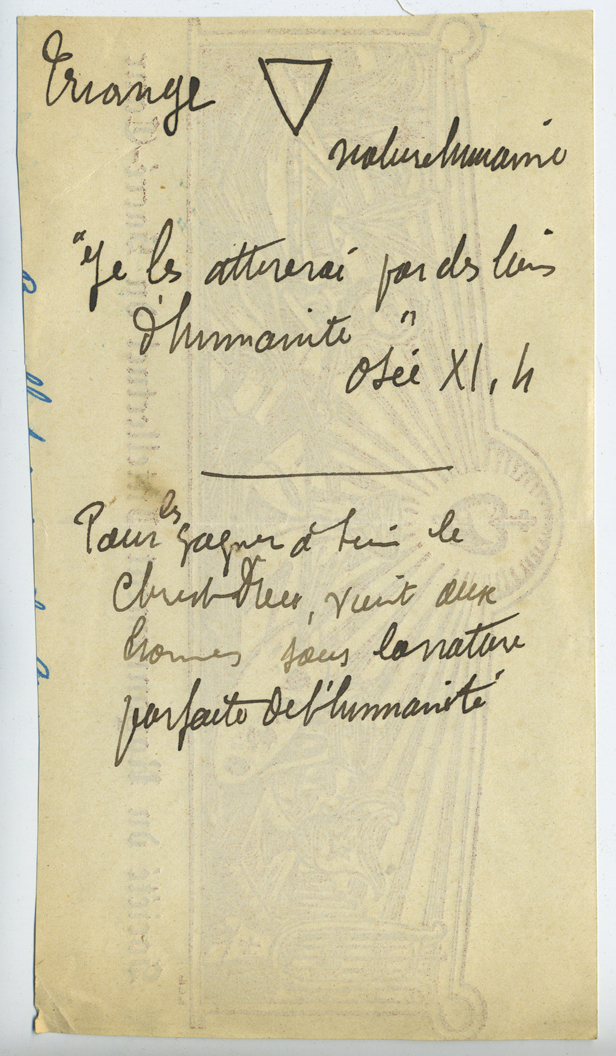 Triange
nature humaine
"Je les attirerai par des liens
d'humanité"
Osée XI, 4
Pour les gagner à lui le
Christ-Dieu, vient aux
hommes sous la nature
parfaite de l'humanité